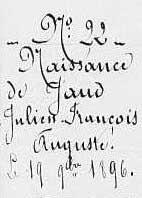 - N° 22 -
Naissance
de Jaud
Julien François
Auguste!
Le 19 9bre 1896.